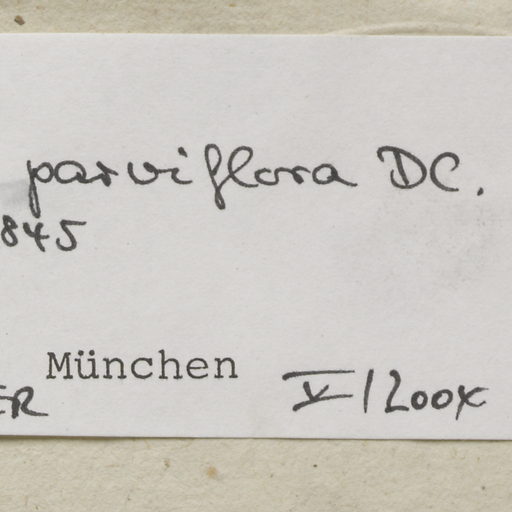 parviflora DC.
845
München
ER V/200x